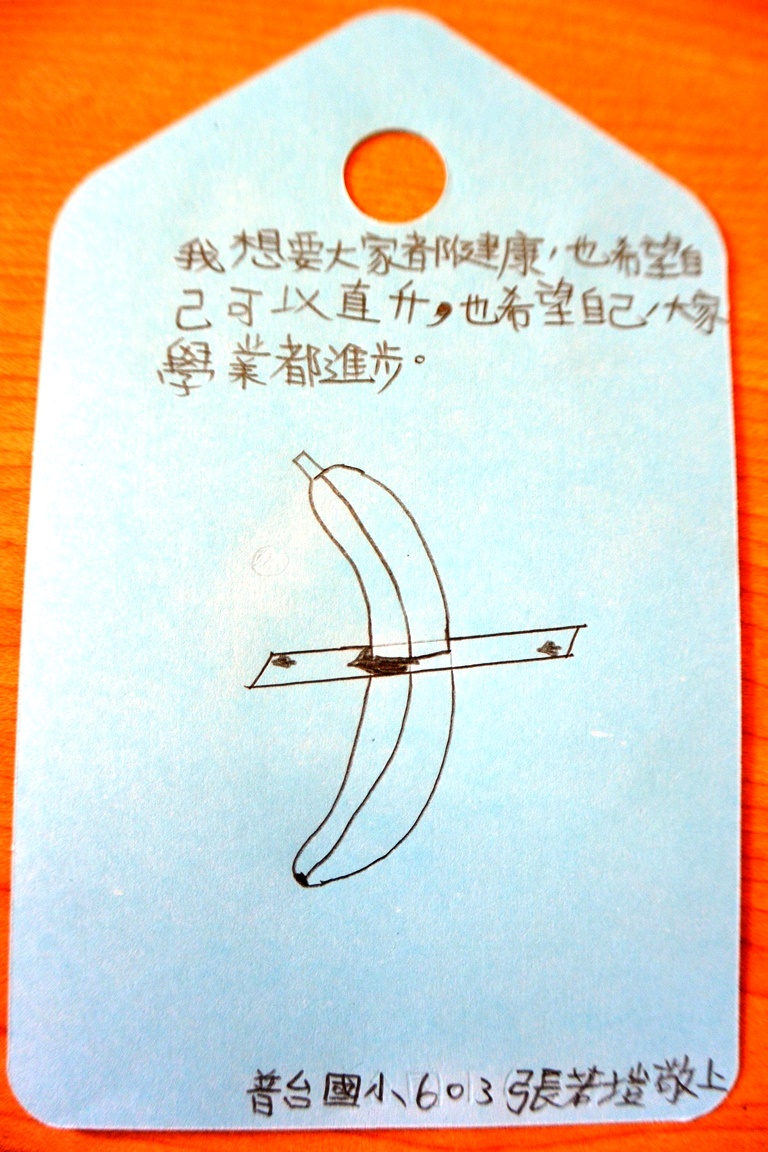 我想要大家都健康,也希望自
己可以直升,也希望自己、大家
學業都進步。
普台國小603張若塏敬上